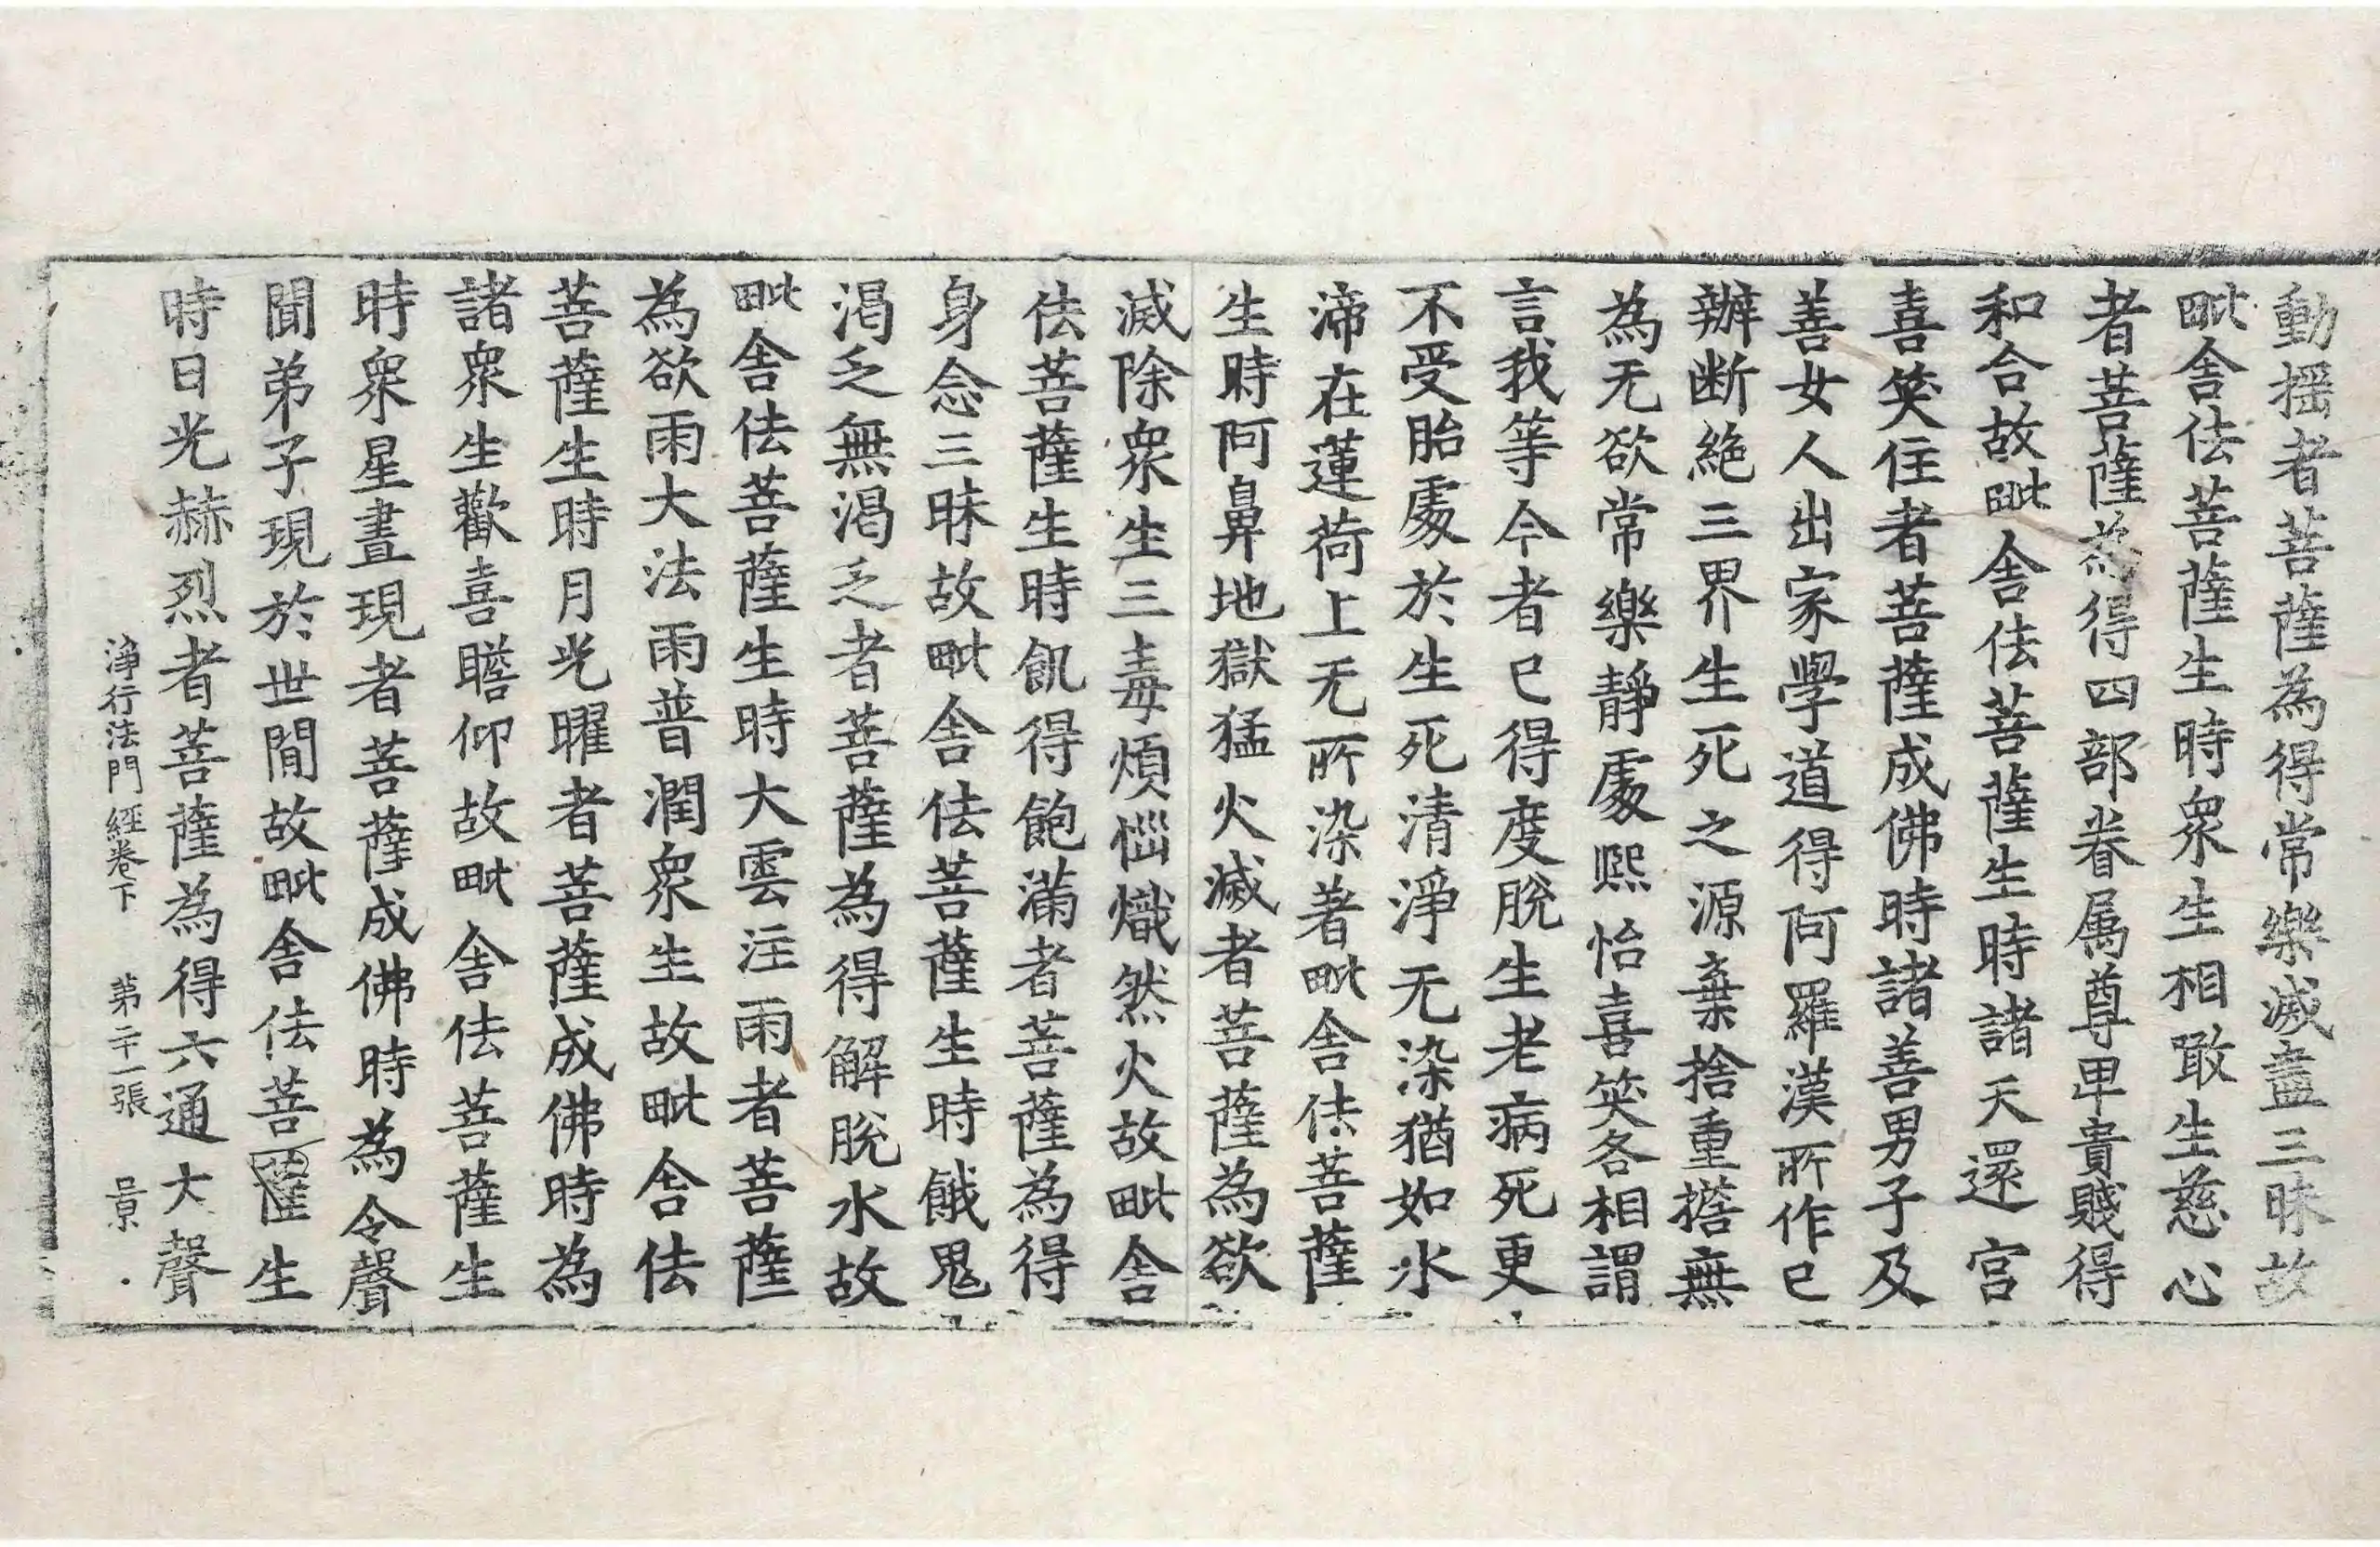 動揺者菩薩為得常樂滅盡三昧故
毗舍佉菩薩生時衆生相敢生慈心
者菩薩為得四部眷属尊卑貴賤得
和合故毗舍佉菩薩生時諸天還宫
喜笑住者菩薩成佛時諸善男子及
善女人出家學道得阿羅漢所作已
辦断絶三界生死之源棄捨重擔無
為无欲常樂靜處熙怡喜笑各相謂
言我等今者已得度脫生老病死更
不受胎處於生死清淨无染猶如水
渧在蓮荷上无所染著毗舍佉菩薩
生時阿鼻地獄猛火滅者菩薩為欲
滅除衆生三毒煩惱熾然火故毗舍
佉菩薩生時飢得飽滿者菩薩為得
身念三昧故毗舍佉菩薩生時餓鬼
渴乏無渴乏者菩薩為得解脫水故
毗舍佉菩薩生時大雲注雨者菩薩
為欲雨大法雨普潤衆生故毗舍佉
菩薩生時月光曜者菩薩成佛時為
諸衆生歡喜瞻仰故毗舍佉菩薩生
時衆星晝現者菩薩成佛時為令聲
聞弟子現於世間故毗舍佉菩薩生
時日光赫烈者菩薩為得六通大聲
淨行法門經卷下 第二十一張 景